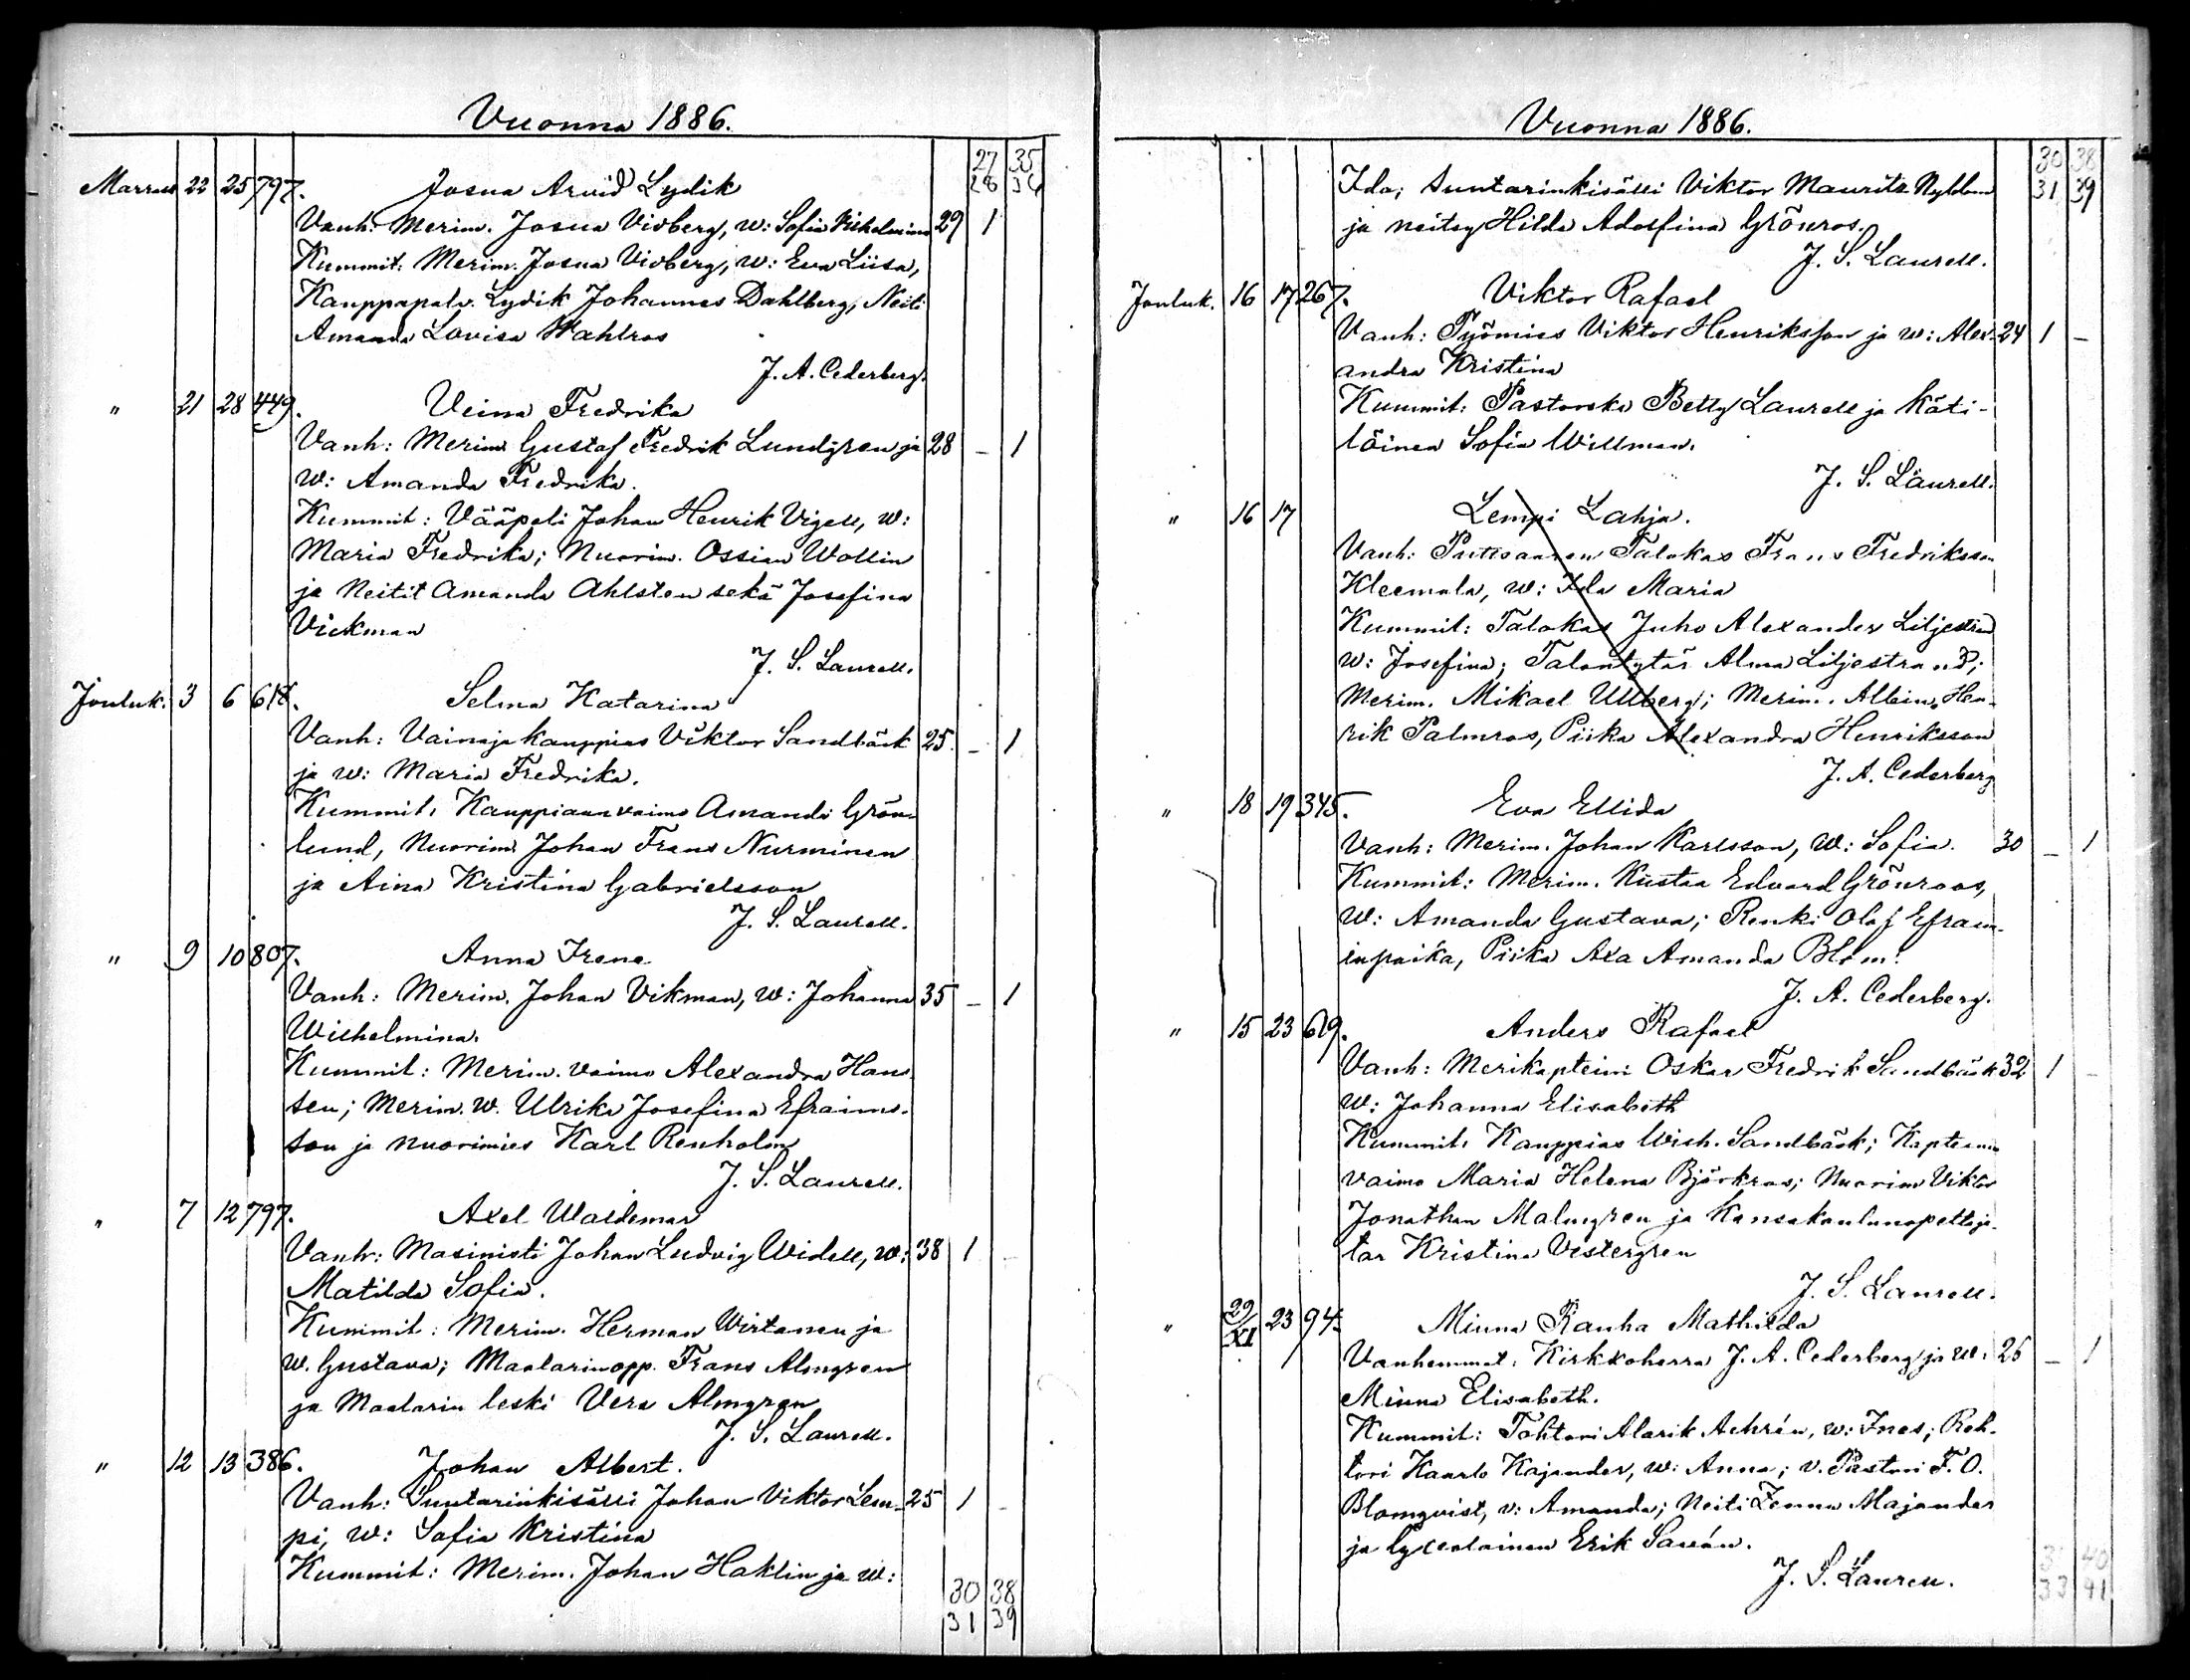 Vuonna 1886.
27 35
28 36
Marrask. 22 25 797. Josua Arvid Lydik
Vanh: Merim. Josua Vidberg, w: Sofia Vilhelmina 29 1
Kummit: Merim. Josua Vidberg, w: Eva Liisa,
Kauppapalv. Lydik Johannes Dahlberg, Neiti
Amanda Lovisa Wahlros
J. A. Cederberg.
" 21 28 449. Veina Fredrika
Vanh: Merim. Gustaf Fredrik Lundgren ja 28 – 1
W: Amanda Fredrika.
Kummit: Vääpeli Johan Henrik Vigell, w:
Maria Fredrika; Nuorim. Ossian Wollin
ja Neitit Amanda Ahlsten sekä Josefina
Vickman
J. S. Laurell.
Jouluk. 3 6 618. Selma Katarina
Vanh: Vainaja kauppias Viktor Sandbäck 25. – 1
ja w: Maria Fredrika.
Kummit: Kauppiaanvaimo Amanda Grön-
lund, Nuorim. Johan Frans Nurminen
ja Aina Kristina Gabrielsson
J. S. Laurell.
" 9 10 807. Anna Irene
Vanh: Merim. Johan Vikman, w: Johanna 35 – 1
Wilhelmina.
Kummit: Merim. vaimo Alexandra Han-
sen; Merim. W. Ulrika Josefina Efraims-
son ja nuorimies Karl Renholm
J. S. Laurell.
" 7 12 797. Axel Waldemar
Vanh: Masinisti Johan Ludvig Widell, w: 38 1 –
Matilda Sofia.
Kummit: Merim. Herman Wirtanen ja
w. Gustava; Maalarinopp. Frans Almgren
ja Maalarin leski Vera Almgren
J. S. Laurell.
" 12 13 386. Johan Albert.
Vanh: Suutarinkisälli Johan Viktor Lem- 25 1 –
pi, w: Sofia Kristina
Kummit: Merim. Johan Haklin ja w:
30 38
31 39
Vuonna 1886.
30 38
31 39
Ida; Suutarinkisälli Viktor Maurits Nyblom
ja neitsy Hilda Adolfina Grönros.
J. S. Laurell.
Jouluk. 16 17 267. Viktor Rafael
Vanh: Työmies Viktor Henriksson ja w: Alex- 24 1 –
andra Kristina
Kummit: Pastorska Betty Laurell ja Käti-
löinen Sofia Willman.
J. S. Laurell.
" 16 17 Lempi Lahja.
Vanh: Putisaaren Talokas Frans Fredriksson
Kleemola, w: Ida Maria
Kummit: Talokas Juho Alexander Liljestrand
w: Josefina; Talontytär Alma Liljestrand;
Merim. Mikael Ullberg; Merim. Albin Hen-
rik Palmros, Piika Alexandra Henriksson
J. A. Cederberg
" 18 19 345. Eva Ellida
Vanh: Merim. Johan Karlsson, W: Sofia. 30 – 1
Kummit: Merim. Kustaa Edvard Grönroos,
W: Amanda Gustava; Renki Olof Efraim-
inpoika, Piika Axa Amanda Blom.
J. A. Cederberg.
" 15 23 619. Anders Rafael
Vanh: Merikapteini Oskar Fredrik Sandbäck 32 1 –
W: Johanna Elisabeth
Kummit: Kauppias Wilh. Sandbäck; Kapteenin
vaimo Maria Helena Björkros; Nuorim Viktor
Jonathan Malmgren ja Kansakoulunopettaja-
tar Kristina Vestergren
J. S. Laurell.
" 29/XI 23 94. Minna Rauha Mathilda
Vanhemmat: Kirkkoherra J. A. Cederberg ja W: 26 – 1
Minna Elisabeth.
Kummit: Tohtori Alarik Achrén, w: Ines; Reh-
tori Kaarlo Kajander, w: Anna; v. Pastori F. O.
Blomqvist, v: Amanda; Neiti Jenna Majander
ja lycealainen Erik Savén.
J. S. Laurell.
40
33 41